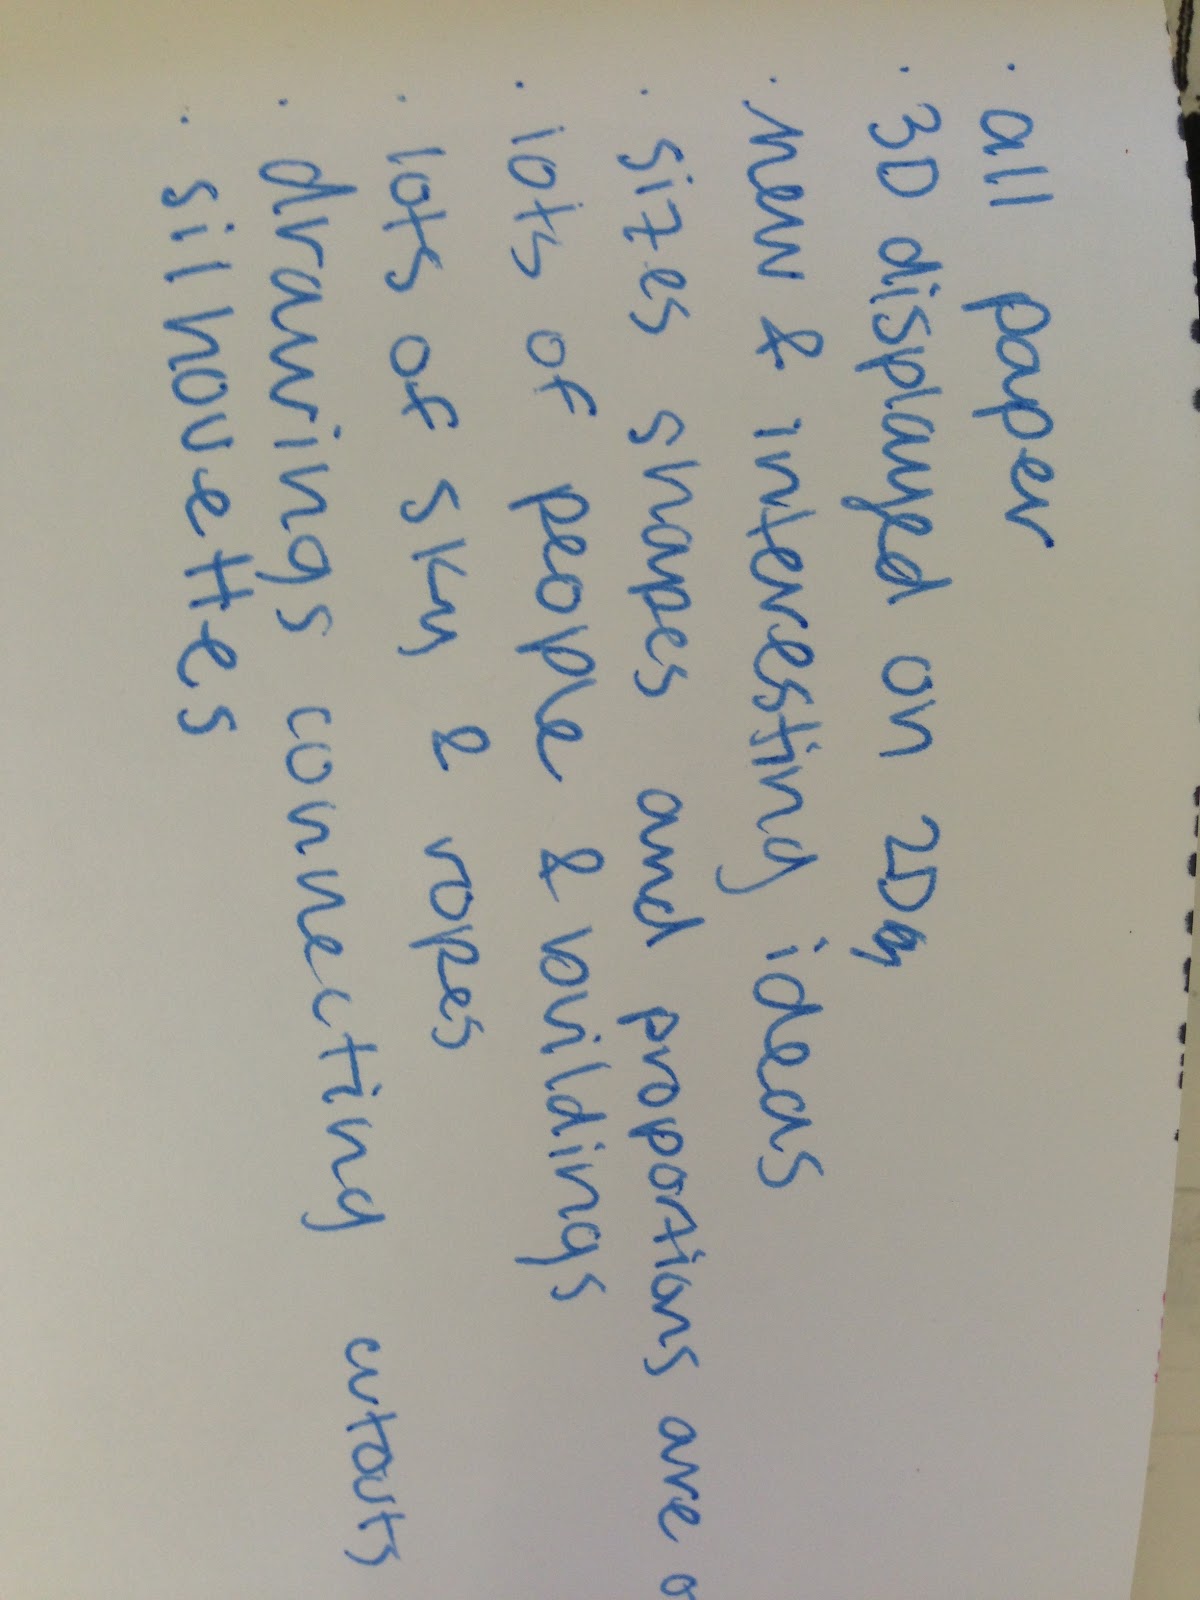 · all paper
· 3D displayed on 2D
· new & interesting ideas
· sizes shapes and proportions are
· lots of people & buildings
· lots of sky & ropes
· drawings connecting cutouts
· silhouettes